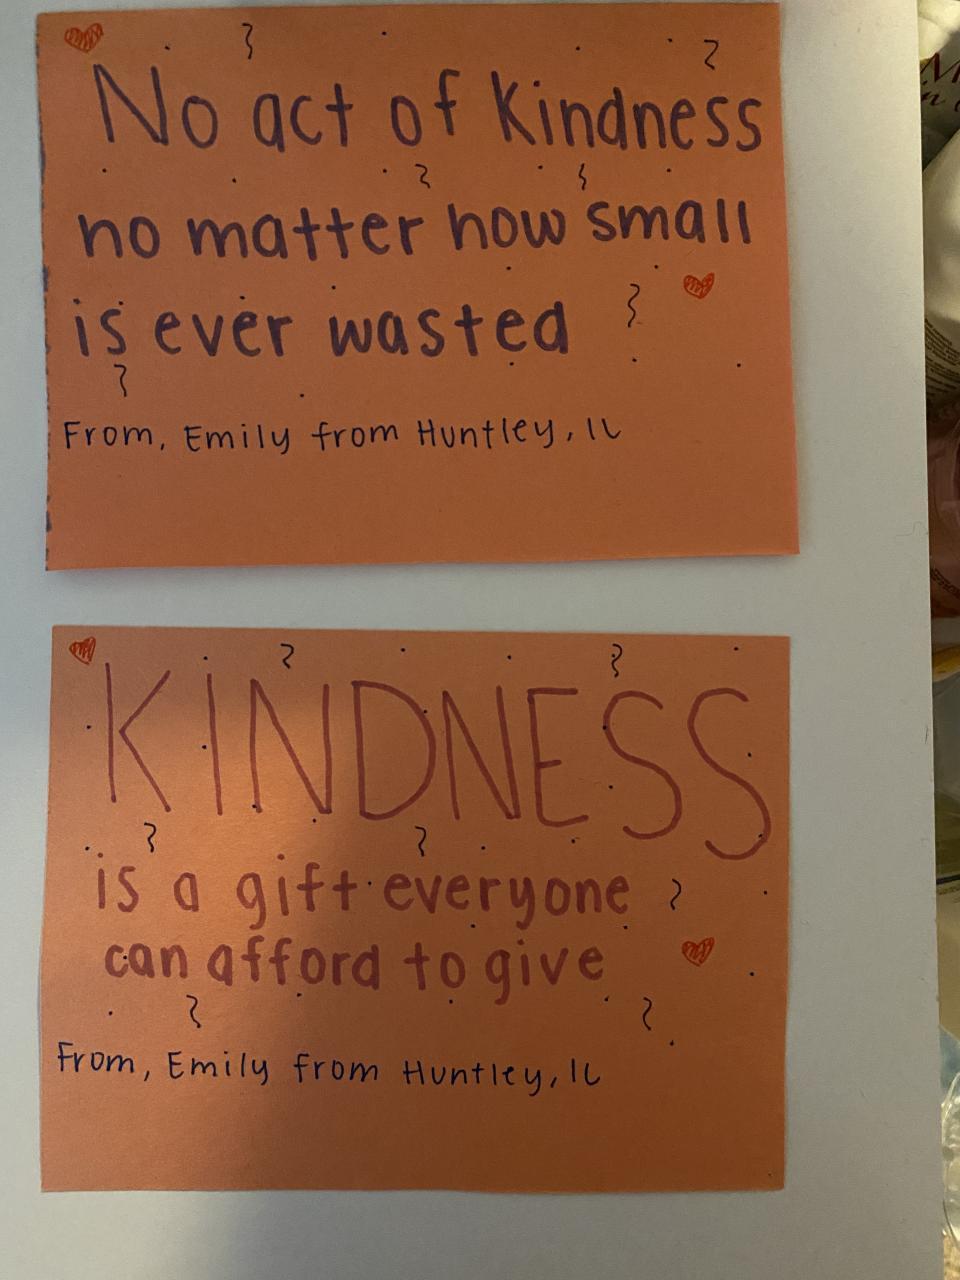 No act of kindness
no matter how small
is ever wasted
From, Emily from Huntley, IL
KINDNESS
is a gift everyone
can afford to give
From, Emily from Huntley, IL